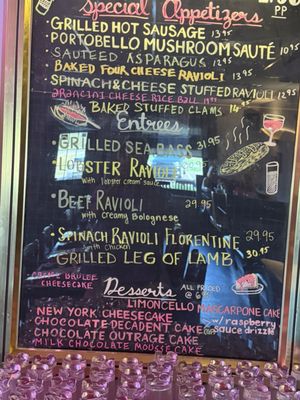 Special Appetizers
PP
GRILLED HOT SAUSAGE 13.95
PORTOBELLO MUSHROOM SAUTÉ
SAUTEED ASPARAGUS 12.95
BAKED FOUR CHEESE RAVIOLI 13.95
SPINACH & CHEESE STUFFED RAVIOLI 12.95
ARANCINI CHEESE RICE BALL
BAKED STUFFED CLAMS 14.95
Entrees
GRILLED SEA BASS 31.95
LOBSTER RAVIOLI
with lobster cream sauce
BEEF RAVIOLI 29.95
with creamy Bolognese
SPINACH RAVIOLI FLORENTINE 29.95
with Chicken
GRILLED LEG OF LAMB 30.95
BRULEE
CHEESECAKE
Desserts
ALL PRICED
@
LIMONCELLO MASCARPONE CAKE
NEW YORK CHEESECAKE
w/ raspberry
sauce drizzle
CHOCOLATE DECADENT CAKE
CHOCOLATE OUTRAGE CAKE
MILK CHOCOLATE MOUSSE CAKE